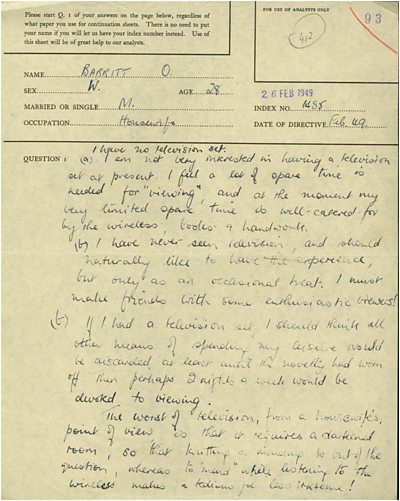 Please start Q. 1 of your answers on the page below, regardless of
what paper you use for continuation sheets. There is no need to put
your name if you will let us have your index number instead. Use of
this sheet will be of great help to our analysts.
FOR USE OF ANALYSTS ONLY
93
412
NAME BARRITT O.
SEX W. AGE 28
MARRIED OR SINGLE M.
OCCUPATION Housewife
26 FEB 1949
INDEX NO. 1485
DATE OF DIRECTIVE Feb. 49.
I have no television set.
QUESTION 1 (a) I am not very interested in having a television
set at present. I feel a lot of spare time is
needed for "viewing", and at the moment my
very limited spare time is well-catered for
by the wireless, books & handwork.
(b) I have never seen television, and should
naturally like to have the experience,
but only as an occasional treat. I must
make friends with some enthusiastic viewers!
(c) If I had a television set, I should think all
other means of spending my leisure would
be discarded, at least until the novelty had worn
off. Then perhaps 2 nights a week would be
devoted to viewing.
The worst of television, from a housewife's
point of view is that it requires a darkened
room, so that knitting or mending is out of the
question, whereas to "mend" while listening to the
wireless makes a tedious job less irksome!